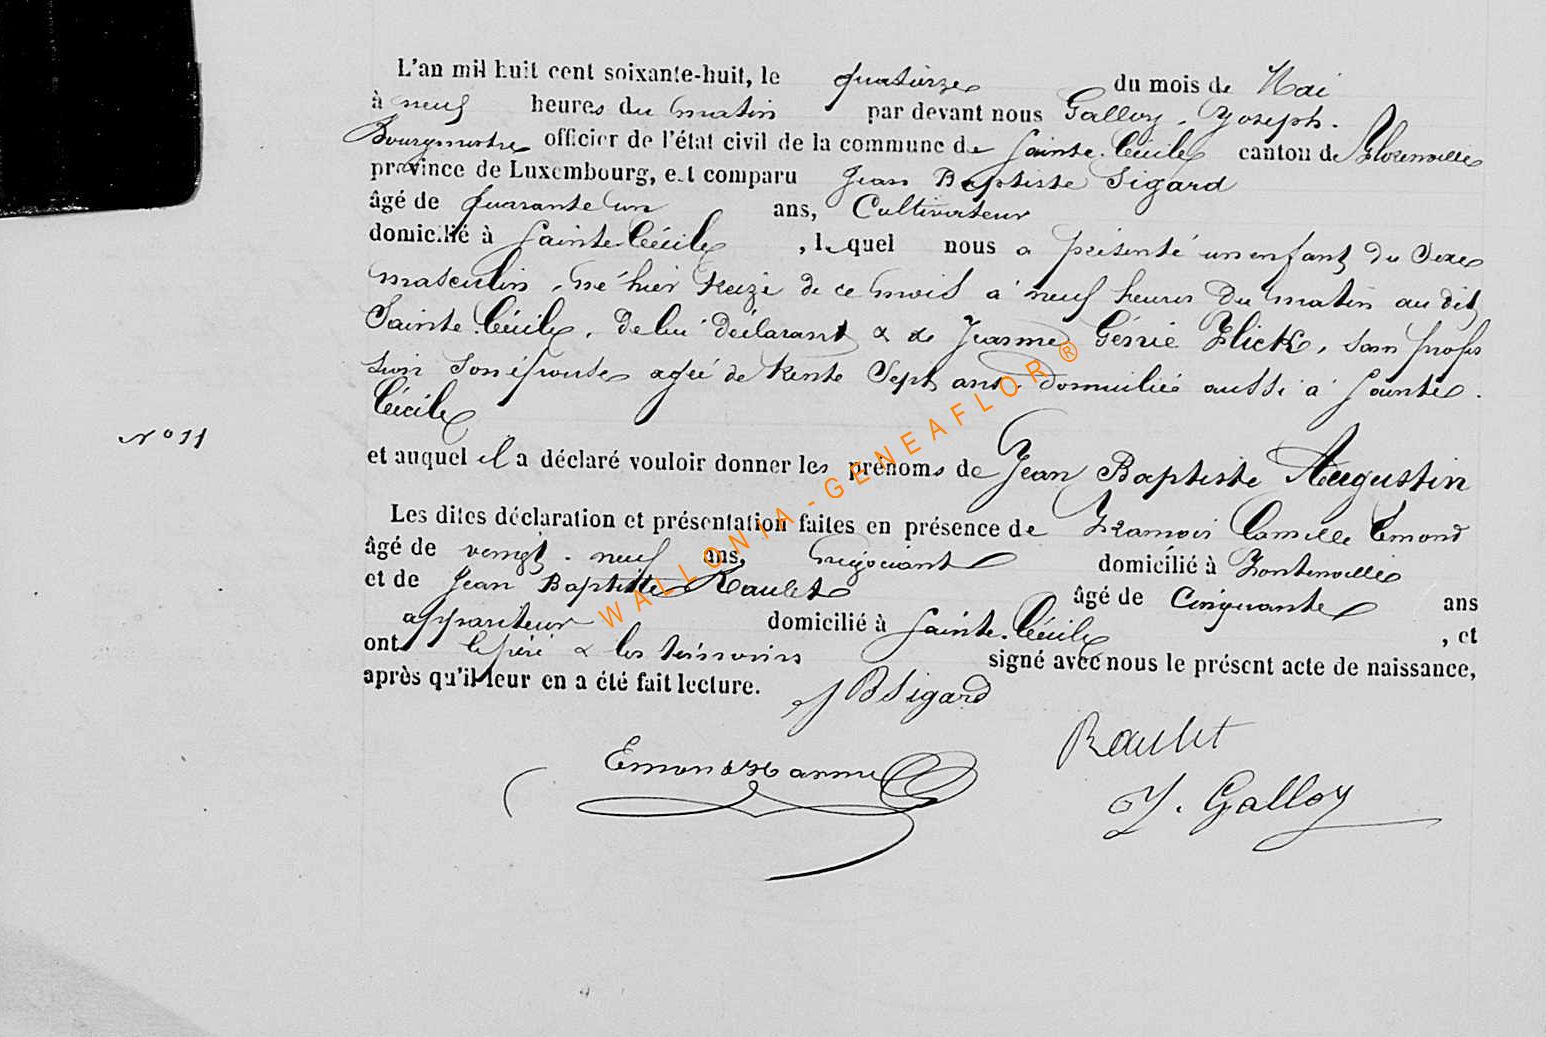 L'an mil huit cent soixante-huit, le quatorze du mois de Mai
à neuf heures du matin par devant nous Galloy, Joseph.
Bourgmestre officier de l'état civil de la commune de Sainte-Cécile canton de Florenville
province de Luxembourg, est comparu Jean Baptiste Sigard
âgé de quarante un ans, Cultivateur
domicilié à Sainte-Cécile, lequel nous a présenté un enfant du Sexe
masculin, né hier treize de ce mois à neuf heures du matin au dit
Sainte-Cécile, de lui déclarant & de Jeanne Génie Flick, sans profes
sion son épouse agée de trente Sept ans, domiciliée aussi à Sainte-
Cécile
N° 11
et auquel il a déclaré vouloir donner les prénoms de Jean Baptiste Augustin
Les dites déclaration et présentation faites en présence de François Camille Emond
âgé de vingt-neuf ans, négociant domicilié à Fontenoille
et de Jean Baptiste Raulet âgé de Cinquante ans
appariteur domicilié à Sainte-Cécile, et
ont le père & les témoins signé avec nous le présent acte de naissance,
après qu'il leur en a été fait lecture. JBSigard
Raulet
J. Galloy
WALLONIA-GENEAFLOR ®